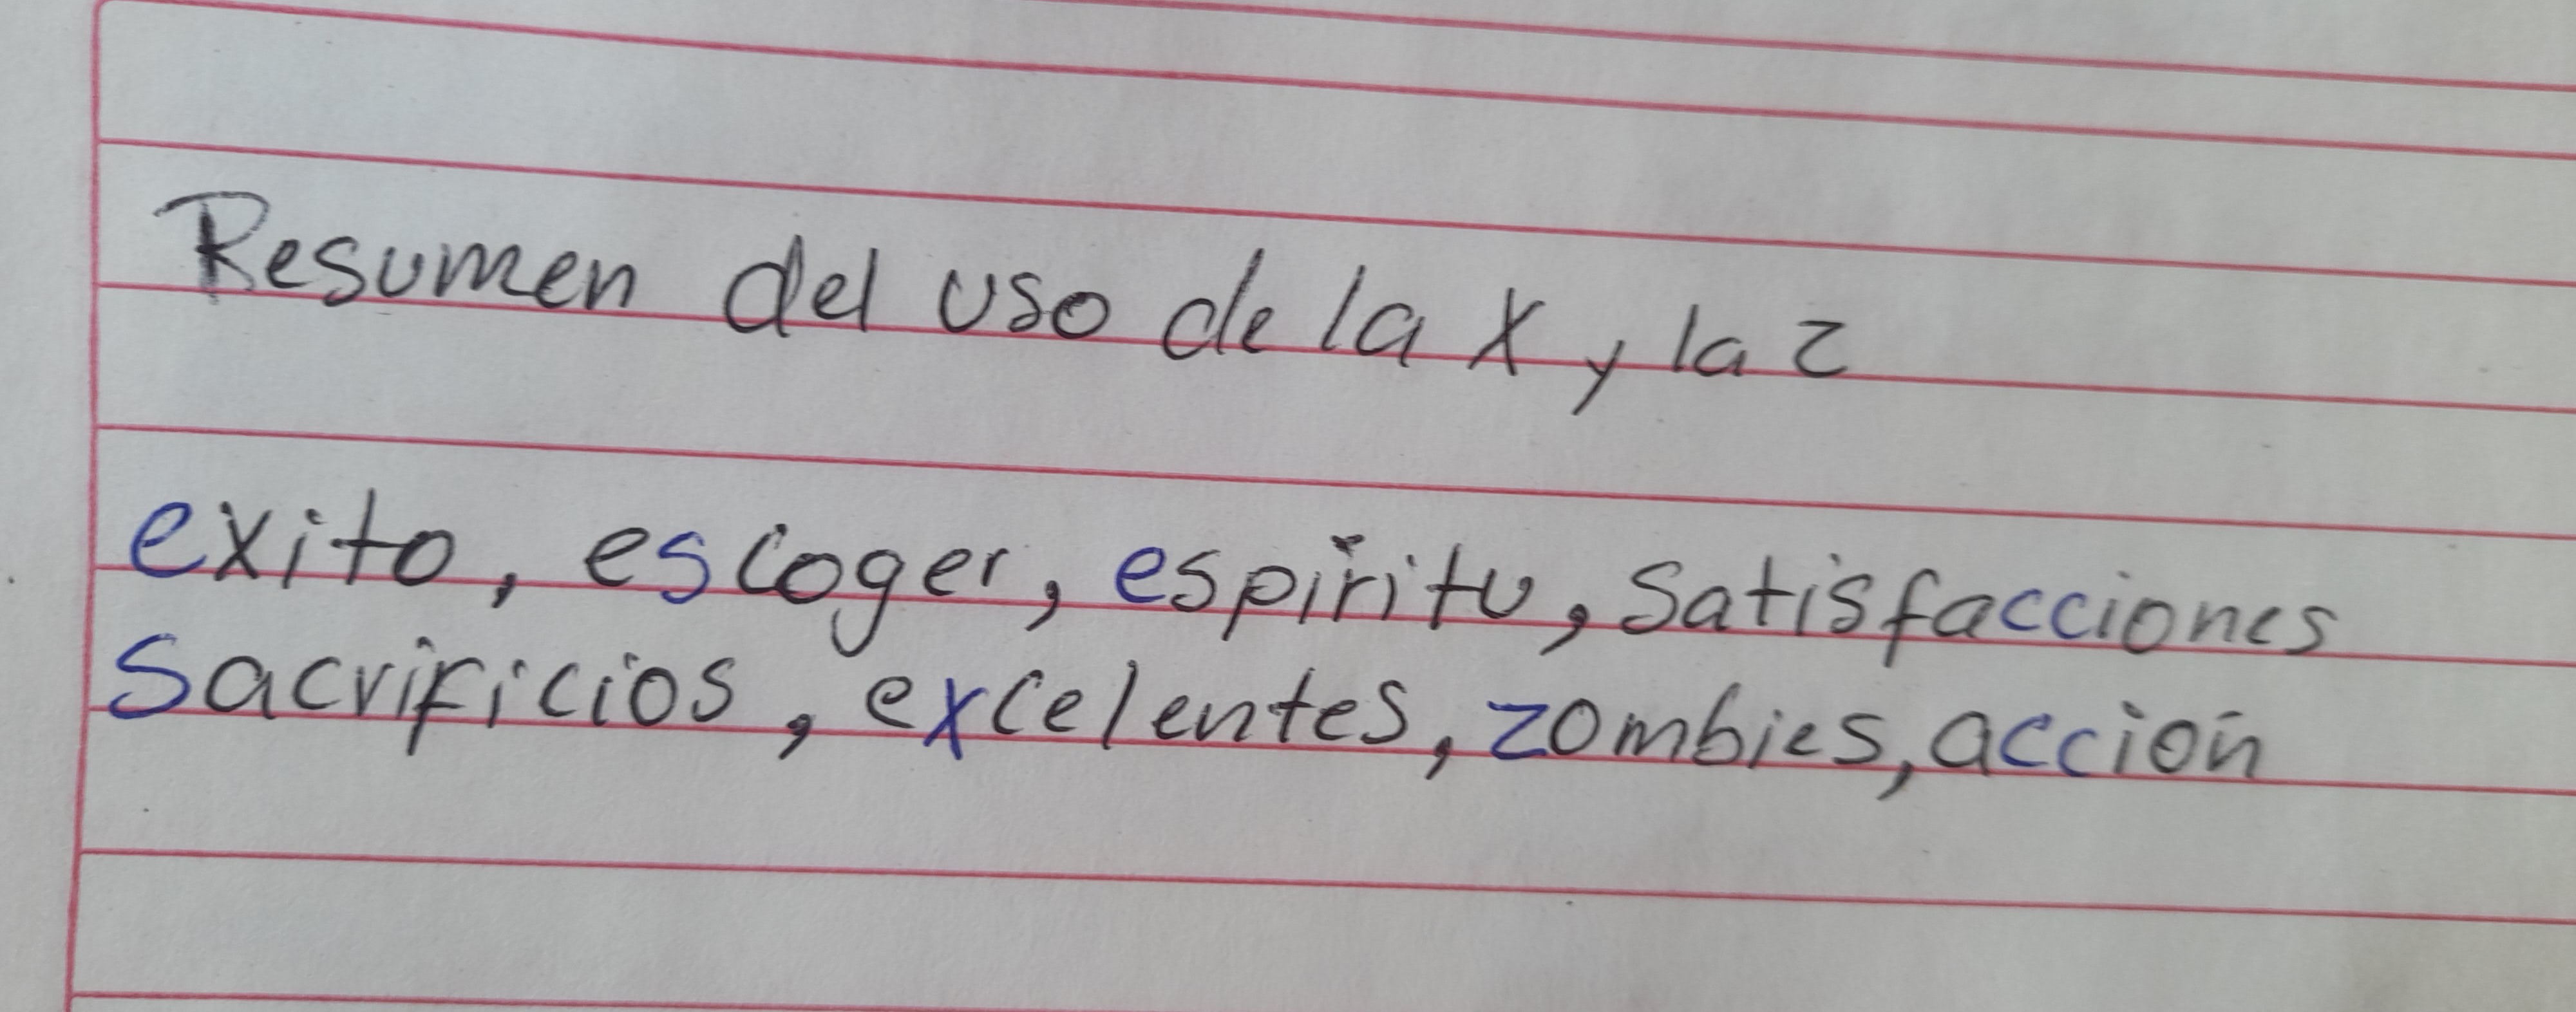 Resumen del uso de la x y la z
exito, escoger, espíritu, satisfacciones
Sacrificios, excelentes, zombies, acción